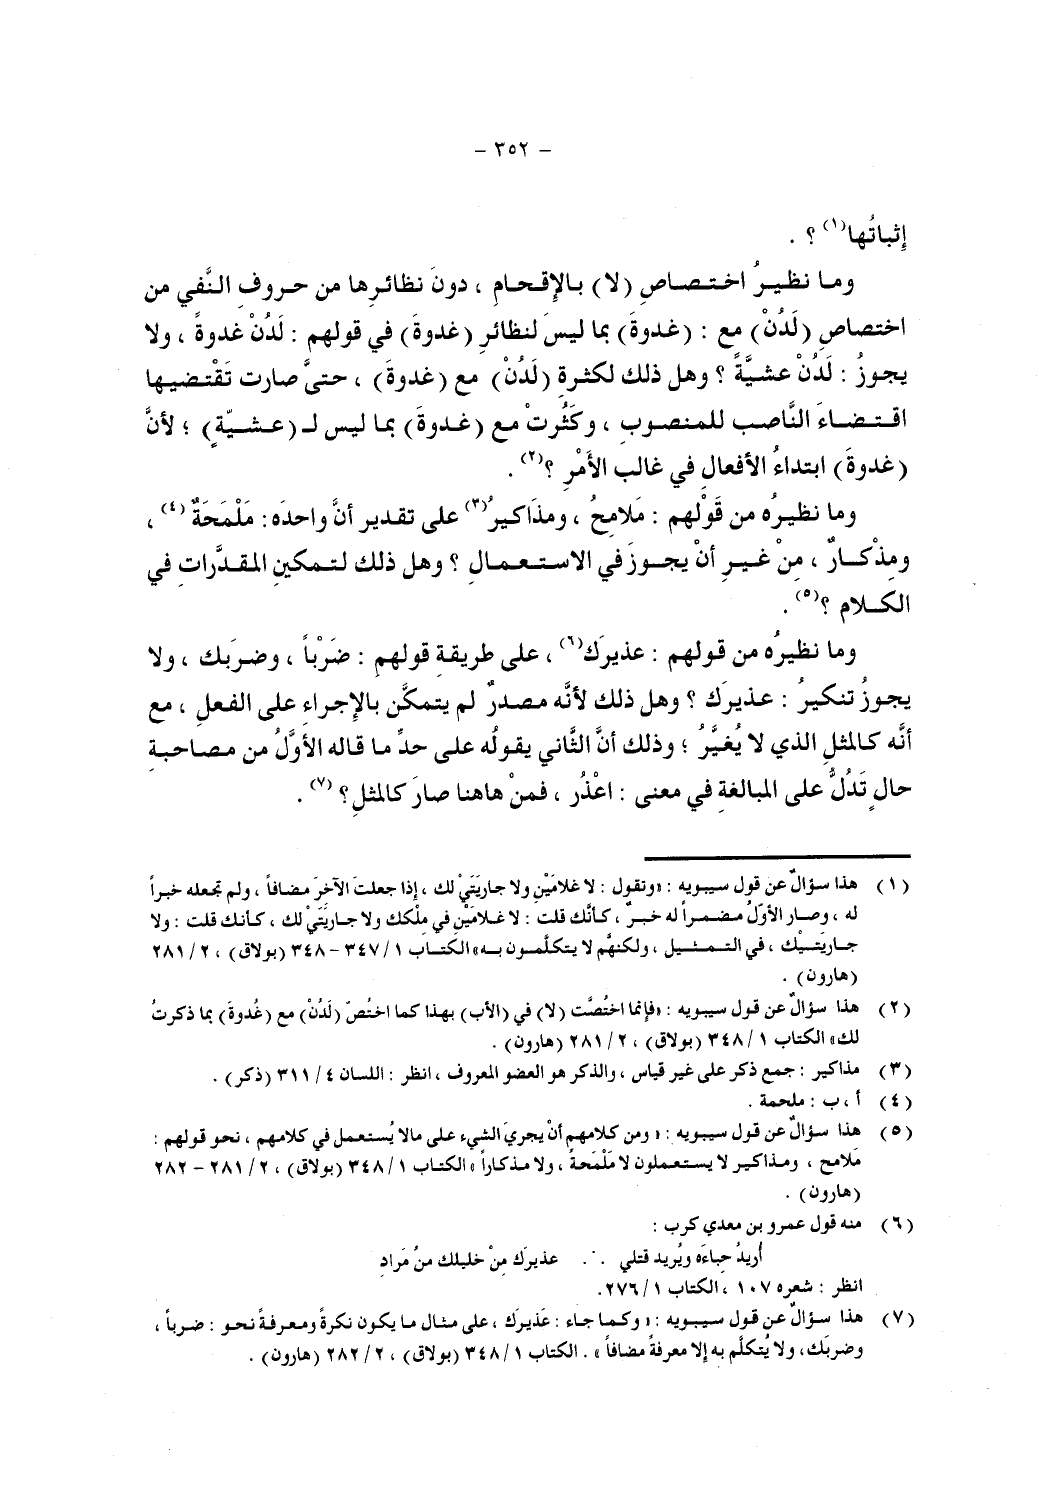 – ٣٥٢ –
إثباتُها(١) ؟ .
وما نظيرُ اختصاصِ (لا) بالإقحامِ ، دونَ نظائرِها من حروفِ النَّفي من
اختصاصِ (لَدُنْ) مع : (غدوةَ) بما ليسَ لنظائرِ (غدوةَ) في قولهم : لَدُنْ غدوةً ، ولا
يجوزُ : لَدُنْ عشيَّةً ؟ وهل ذلك لكثرةِ (لَدُنْ) مع (غدوةَ) ، حتىَّ صارت تَقْتضيها
اقتضاءَ النَّاصب للمنصوب ، وكَثُرتْ مع (غدوةَ) بما ليس لـ (عشيّةٍ) ؛ لأنَّ
(غدوةَ) ابتداءُ الأفعال في غالب الأمْرِ ؟(٢) .
وما نظيرُه من قَوْلهم : مَلامحُ ، ومذَاكيرُ(٣) على تقدير أنَّ واحدَه: مَلْمَحَةٌ (٤) ،
ومِذْكارٌ ، مِنْ غيرِ أنْ يجوزَ في الاستعمالِ ؟ وهل ذلك لتمكينِ المقدَّرات في
الكلام ؟(٥) .
وما نظيرُه من قولهم : عذيرَك(٦) ، على طريقةِ قولهم : ضَرْباً ، وضربَك ، ولا
يجوزُ تنكيرُ : عذيرَك ؟ وهل ذلك لأنَّه مصدرٌ لم يتمكَّن بالإجراءِ على الفعلِ ، مع
أنَّه كالمثلِ الذي لا يُغيَّرُ ؛ وذلك أنَّ الثَّاني يقولُه على حدِّ ما قاله الأوَّلُ من مصاحبةِ
حالٍ تَدُلُّ على المبالغةِ في معنى : اعْذُر ، فمنْ هاهنا صارَ كالمثلِ؟ (٧) .
(١) هذا سؤالٌ عن قول سيبويه : «وتقول : لا غلامَيْن ولا جاريَتَيْ لك ، إذا جعلتَ الآخرَ مضافاً ، ولم تجعله خبراً
له ، وصار الأوّلُ مضمراً له خبرٌ ، كأنَّك قلت: لا غلامَيْن في ملْكك ولا جاريَتَيْ لك ، كأنك قلت : ولا
جاريتَيْك ، في التمثيل ، ولكنهَّم لا يتكلّمون به» الكتاب ١/ ٣٤٧– ٣٤٨ (بولاق) ، ٢/ ٢٨١
(هارون) .
(٢) هذا سؤالٌ عن قول سيبويه : «فإنما اختُصَّت (لا) في (الأب) بهذا كما اختُصّ (لَدُنْ) مع (غُدوةَ) بما ذكرتُ
لك» الكتاب ١/ ٣٤٨ (بولاق) ، ٢/ ٢٨١ (هارون) .
(٣) مذاكير : جمع ذكر على غير قياس ، والذكر هو العضو المعروف ، انظر : اللسان ٤/ ٣١١ (ذكر) .
(٤) أ ، ب : ملحمة .
(٥) هذا سؤالٌ عن قول سيبويه : « ومن كلامهم أنْ يجريَ الشيء على مالا يُستعمل في كلامهم ، نحو قولهم :
مَلامح ، ومذاكير لا يستعملون لا مَلْمَحةً ، ولا مذكاراً » الكتاب ١/ ٣٤٨ (بولاق) ، ٢/ ٢٨١ – ٢٨٢
(هارون) .
(٦) منه قول عمرو بن معدي كرب :
أريدُ حِباءَه ويُريد قتلي .·. عذيرَك مِنْ خليلك منُ مَرادِ
انظر : شعره ١٠٧ ، الكتاب ١/ ٢٧٦.
(٧) هذا سؤالٌ عن قول سيبويه : « وكما جاء : عَذيرَك ، على مثال ما يكون نكرةً ومعرفةً نحو : ضرباً ،
وضربَك، ولا يُتكلَّم به إلا معرفةً مضافاً » . الكتاب ١/ ٣٤٨ (بولاق) ، ٢/ ٢٨٢ (هارون) .